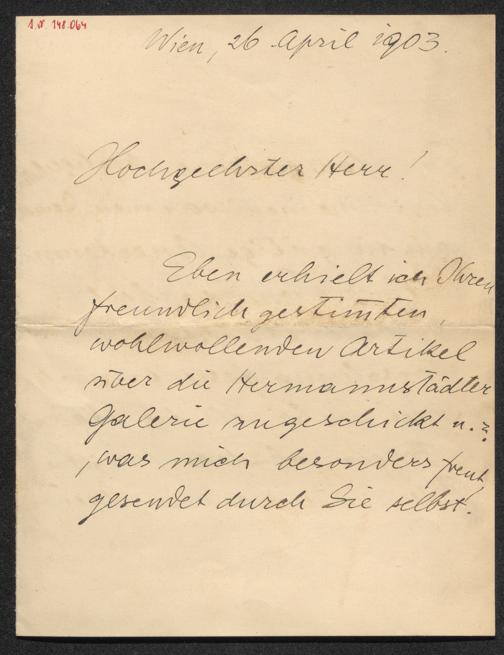 I.N. 148.064
Wien, 26 April 1903.
Hochgeehrter Herr!
Eben erhielt ich Ihren
freundlich gestimten,
wohlwollenden Artikel
über die Hermannstädter
Galerie zugeschickt u. z.
, was mich besonders freut,
gesendet durch Sie selbst.